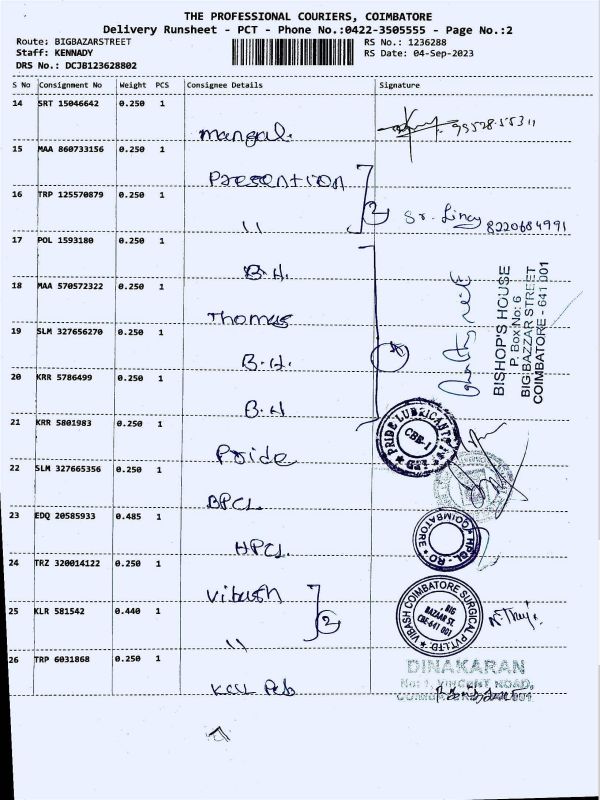 THE PROFESSIONAL COURIERS, COIMBATORE
Delivery Runsheet - PCT - Phone No.:0422-3505555 - Page No.:2
Route: BIGBAZARSTREET
Staff: KENNADY
DRS No.: DCJB123628802
RS No.: 1236288
RS Date: 04-Sep-2023
S No Consignment No Weight PCS Consignee Details Signature
14 SRT 15046642 0.250 1
mangal. 99528-55311
15 MAA 860733156 0.250 1
PRESENTION
16 TRP 125570879 0.250 1
" 2 Sr. Lincy 8220684991
17 POL 1593180 0.250 1
B.H.
18 MAA 570572322 0.250 1
Thomas
19 SLM 327656270 0.250 1
B.H.
20 KRR 5786499 0.250 1
B.H
BISHOP'S HOUSE
P. Box No: 6
BIG BAZZAR STREET
COIMBATORE - 641 001
21 KRR 5801983 0.250 1
Pride
PRIDE LUBRICANTS
CBE-1
22 SLM 327665356 0.250 1
BPCL
23 EDQ 20585933 0.485 1
HPCL
HPCL - RO
COIMBATORE
24 TRZ 320014122 0.250 1
Vibash
25 KLR 581542 0.440 1
" 2
VIBASH COIMBATORE SURGICAL PVT.LTD.
BIG
BAZAAR ST.
CBE-641 001
26 TRP 6031868 0.250 1
DINAKARAN
No: 1, VINCENT ROAD,